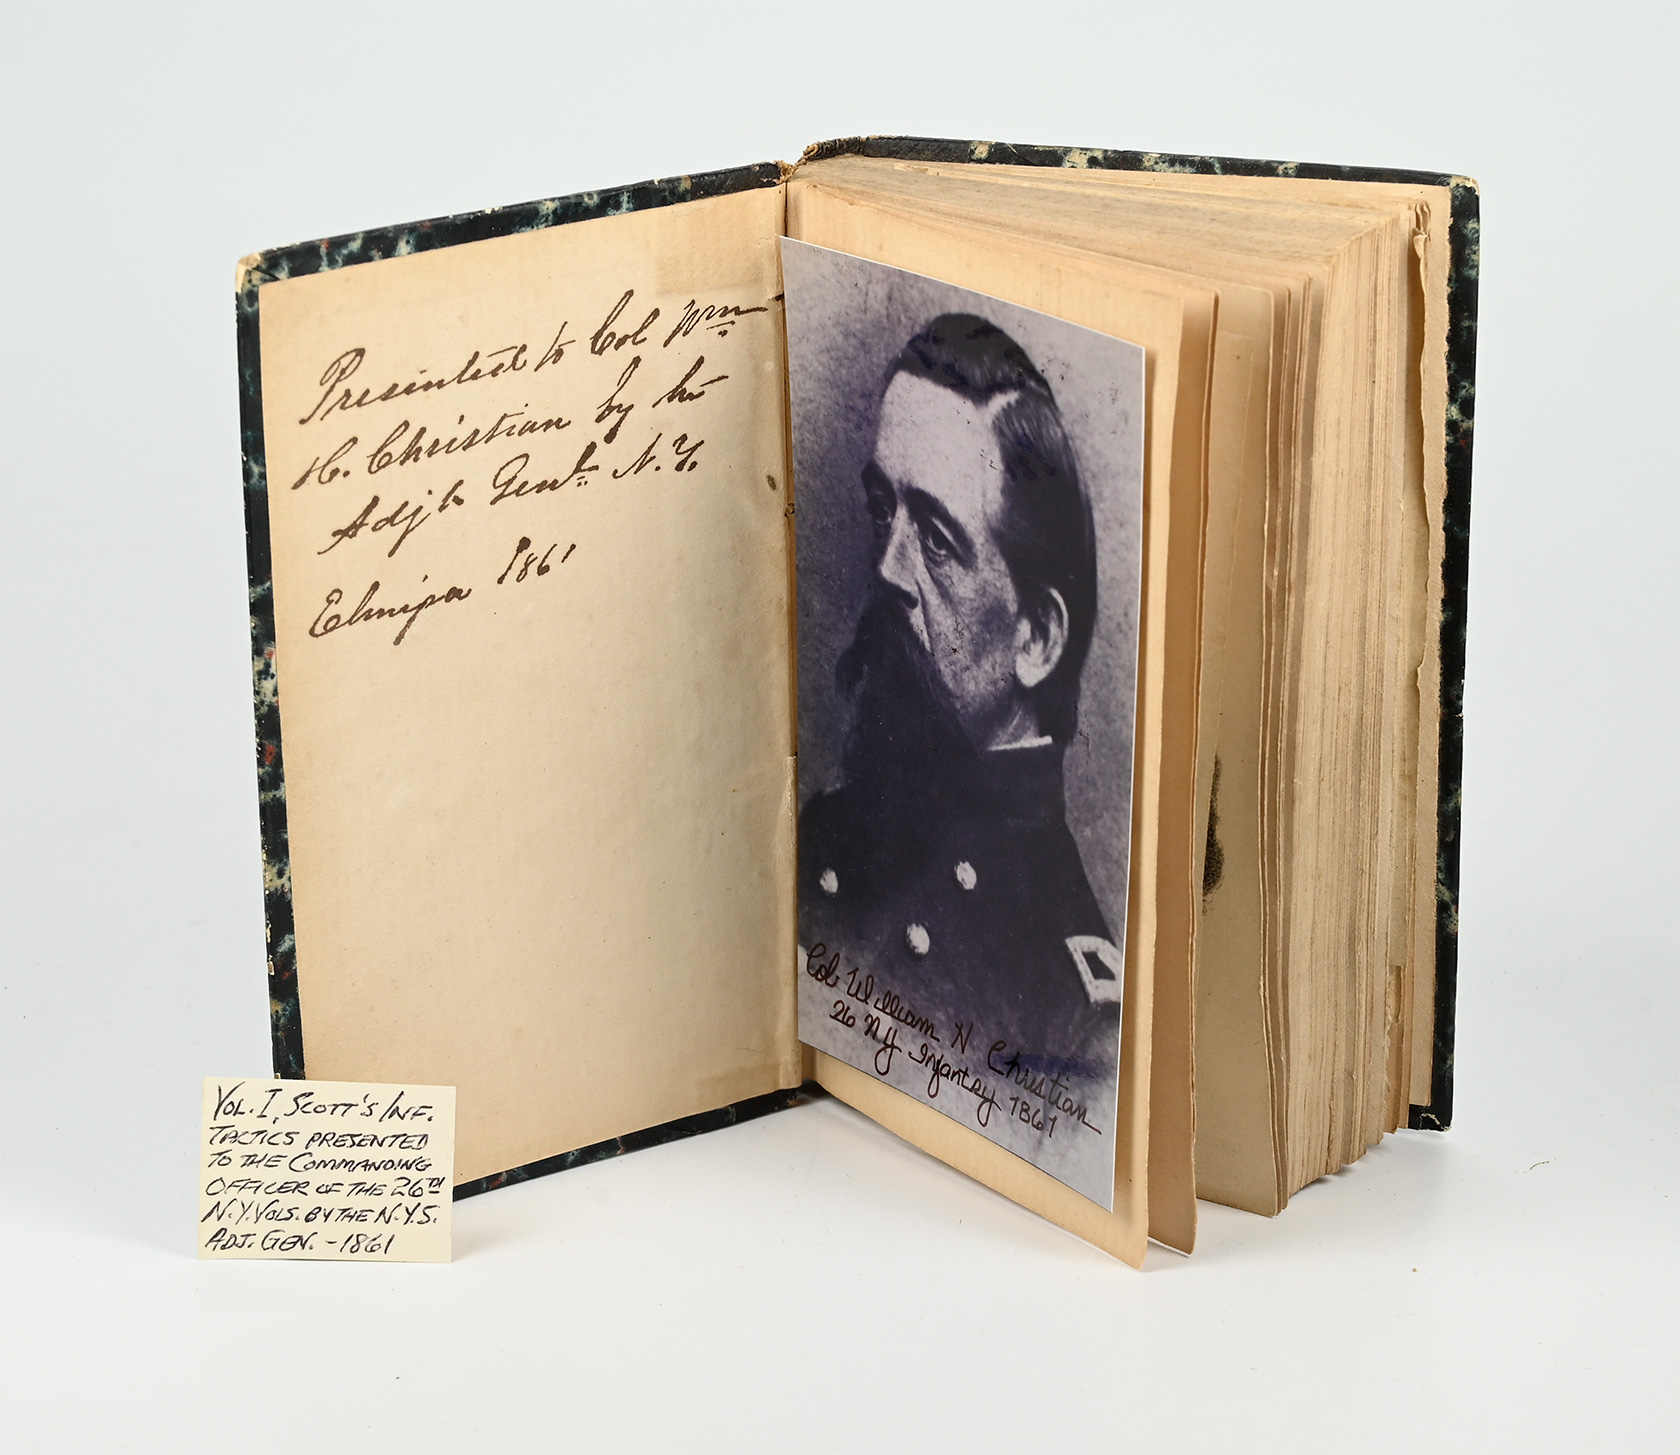 Presented to Col Wm
H. Christian by the
Adjt Genl. N.Y.
Elmira 1861
Col William H Christian
26 NY Infantry 1861
VOL. I, SCOTT'S INF.
TACTICS PRESENTED
TO THE COMMANDING
OFFICER OF THE 26TH
N.Y. VOLS. BY THE N.Y.S.
ADJ. GEN. - 1861